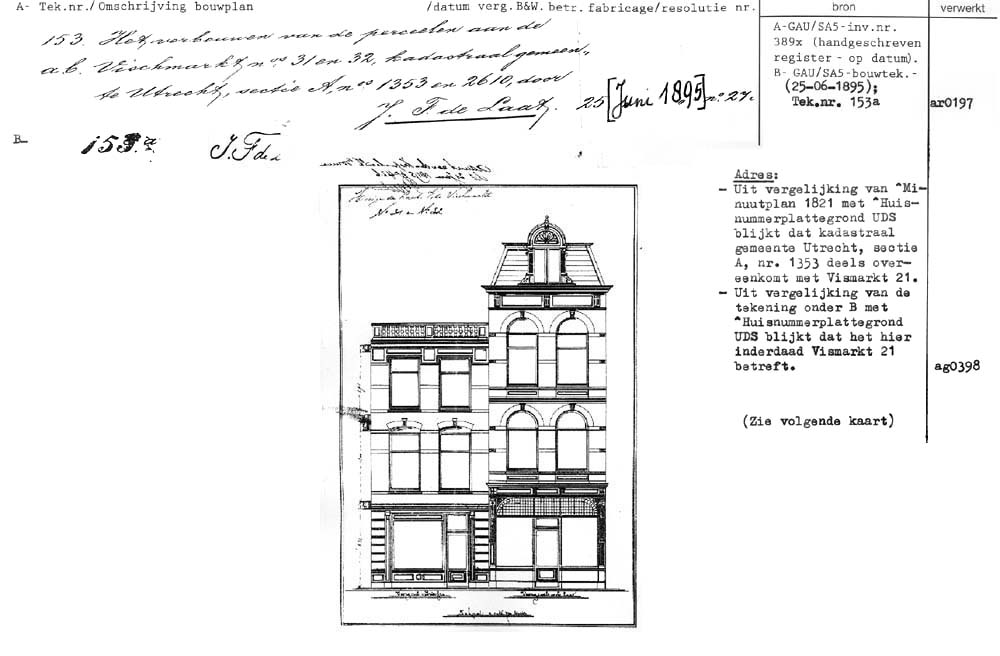 A- Tek.nr./Omschrijving bouwplan /datum verg.B&W. betr. fabricage/resolutie nr. bron verwerkt
153. Het verbouwen van de perceelen aan de
a.b. Vischmarkt, nos 31 en 32, kadastraal gemeen-
te Utrecht, sectie A, nos 1353 en 2610, door
J. F. de Laat. 25 [Juni 1895] no. 27.
A-GAU/SA5-inv.nr.
389x (handgeschreven
register - op datum).
B- GAU/SA5-bouwtek.-
(25-06-1895);
Tek.nr. 153a
ar0197
B- 153.a J.F de
No 31 en No 32.
Adres:
- Uit vergelijking van ^Mi-
nuutplan 1821 met ^Huis-
nummerplattegrond UDS
blijkt dat kadastraal
gemeente Utrecht, sectie
A, nr. 1353 deels over-
eenkomt met Vismarkt 21.
- Uit vergelijking van de
tekening onder B met
^Huisnummerplattegrond
UDS blijkt dat het hier
inderdaad Vismarkt 21
betreft.
ag0398
(Zie volgende kaart)